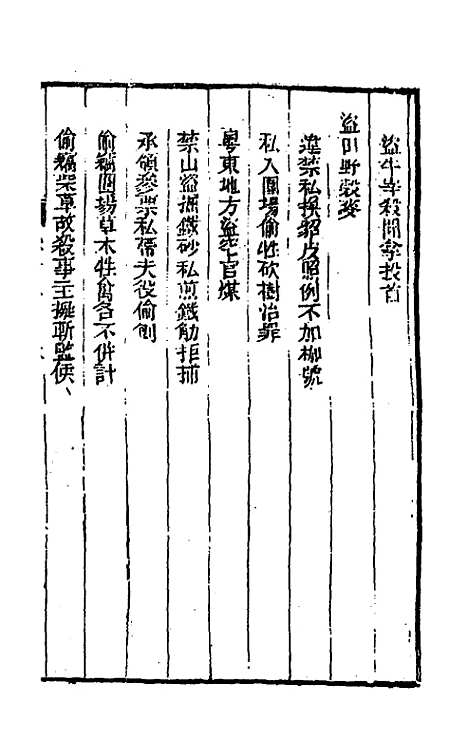 盜牛宰殺聞拿投首
盜田野穀麥
違禁私採貂皮照例不加枷號
私入圍場偷牲砍樹治罪
粵東地方盜挖官煤
禁山盜掘鐵砂私煎鐵觔拒捕
承領參票私帶夫役偷刨
偷竊圍場草木牲畜各不併計
偷竊柴草故殺事主擬斬監候